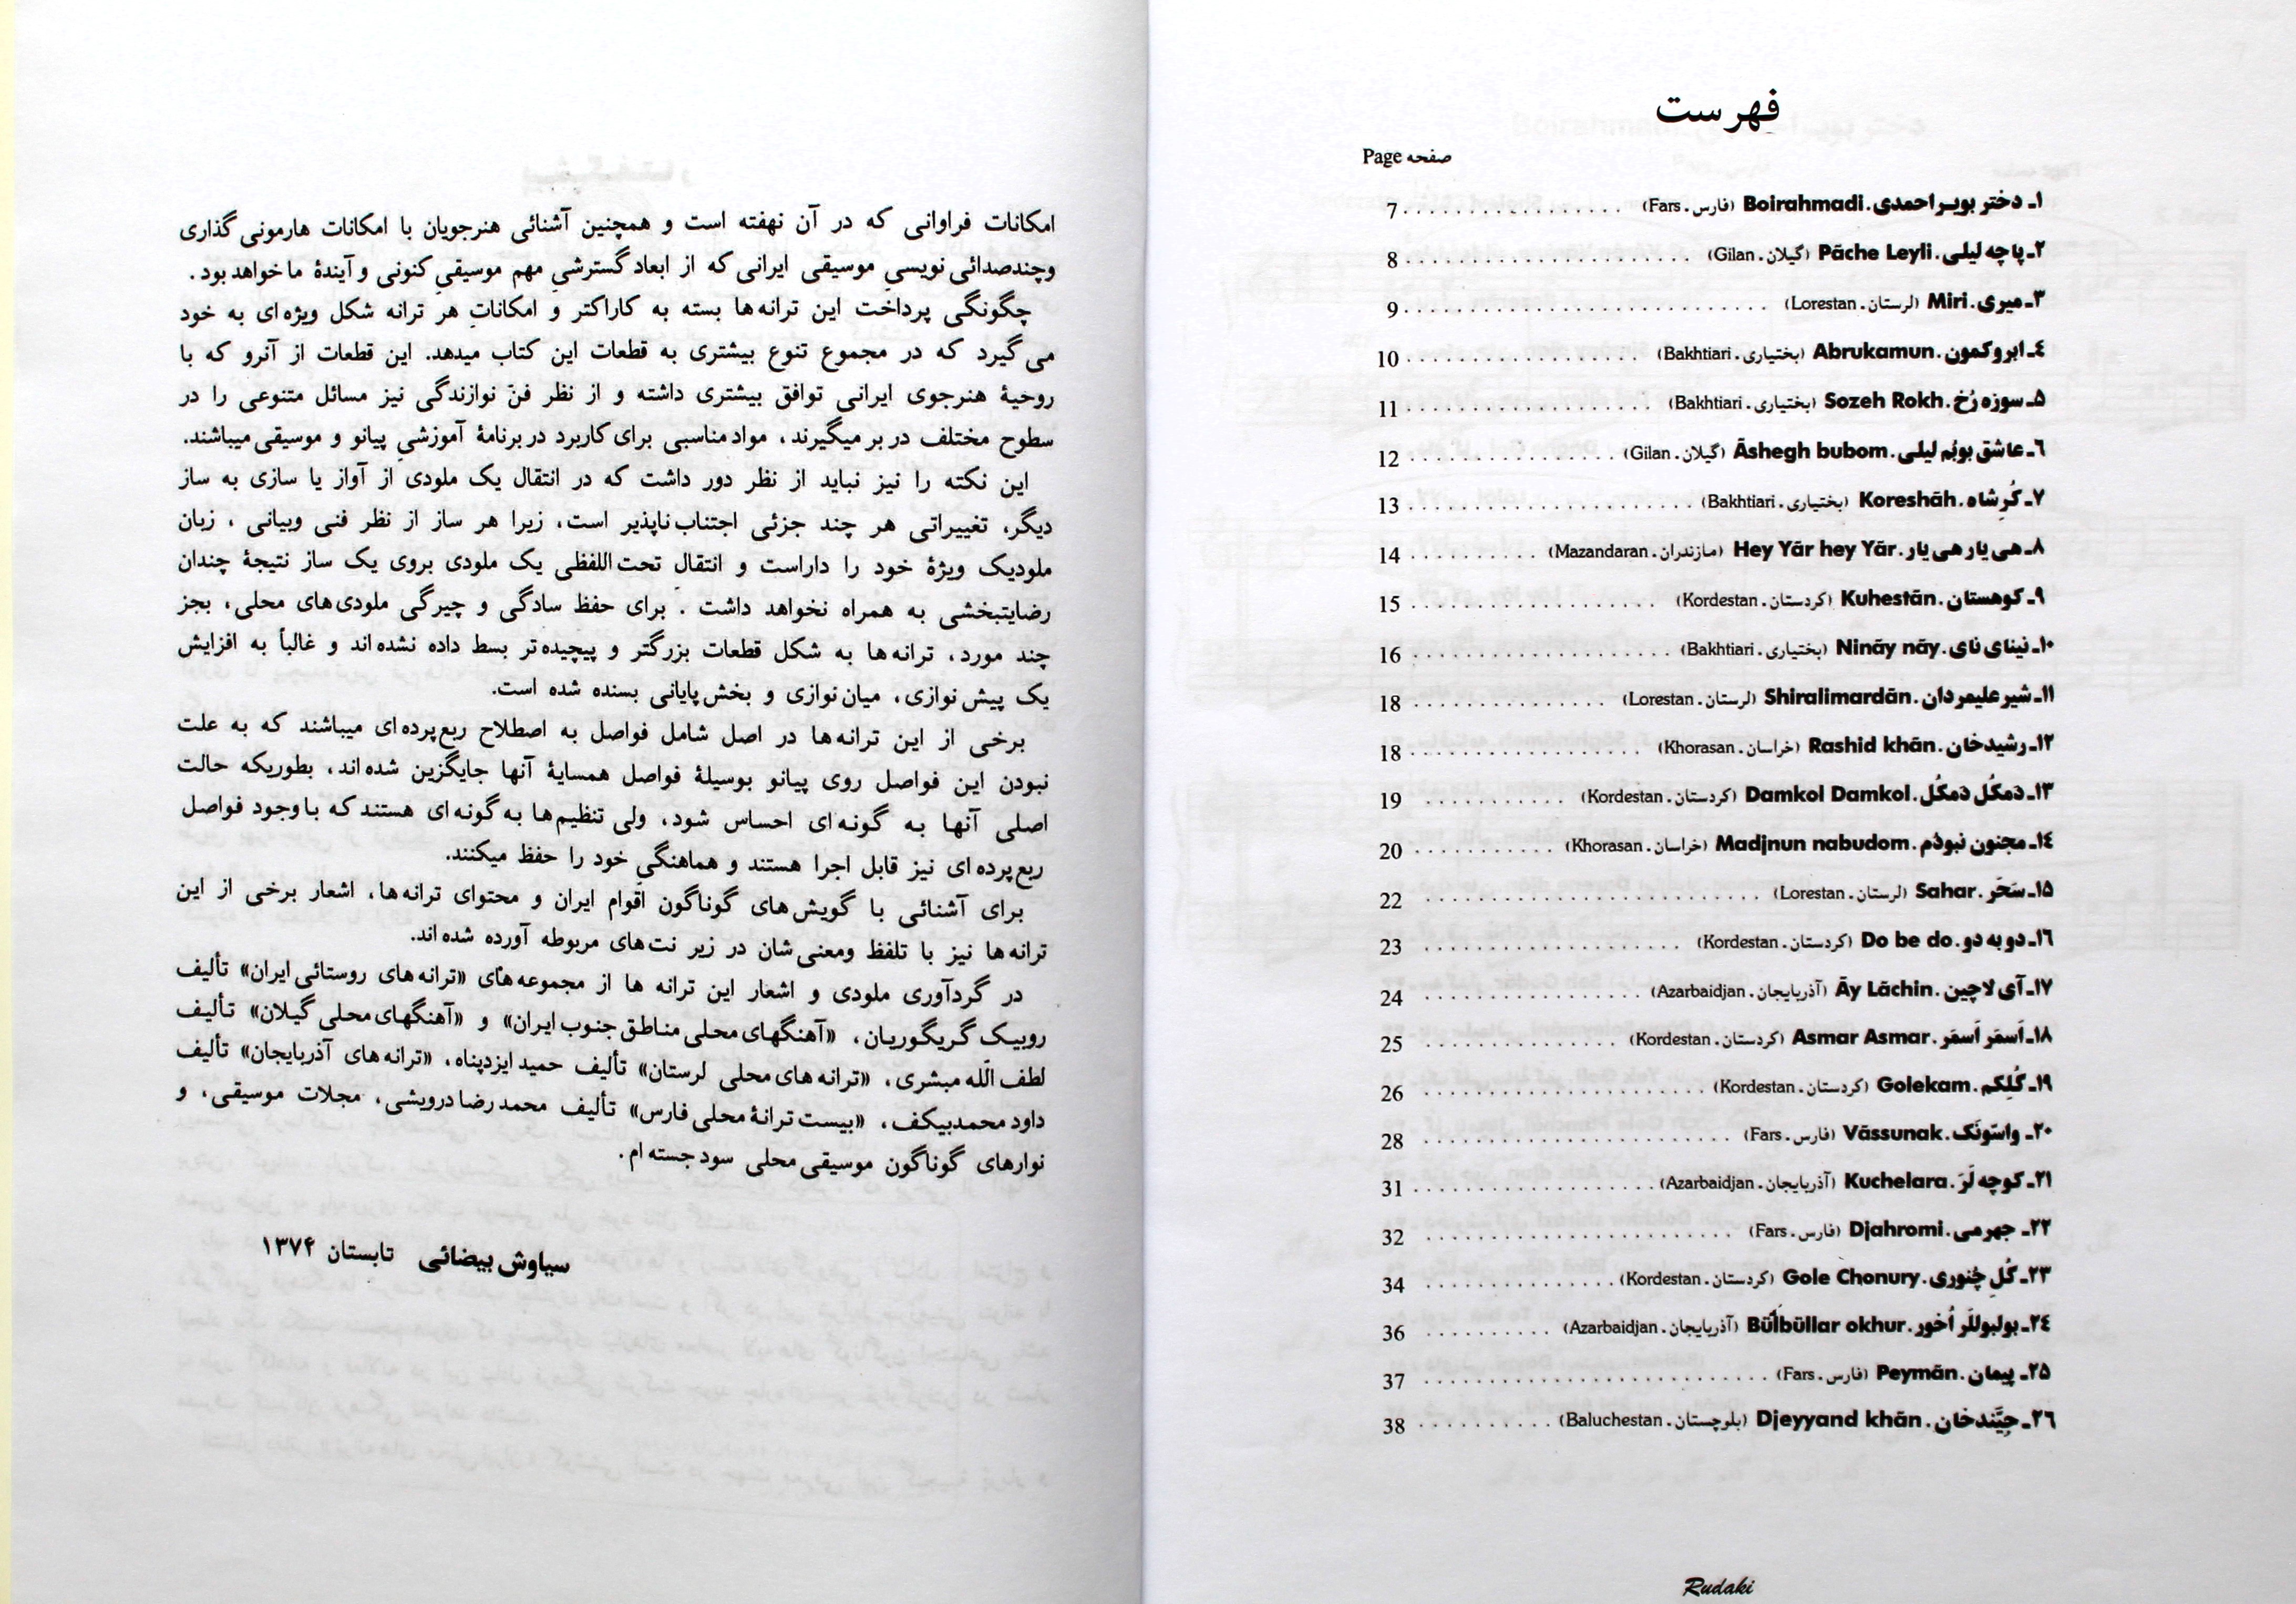 امکانات فراوانی که در آن نهفته است و همچنین آشنائی هنرجویان با امکانات هارمونی گذاری
وچندصدائی نویسیِ موسیقی ایرانی که از ابعاد گسترشیِ مهم موسیقیِ کنونی و آیندهٔ ما خواهد بود.
چگونگی پرداخت این ترانه‌ها بسته به کاراکتر و امکاناتِ هر ترانه شکل ویژه‌ای به خود
می‌گیرد که در مجموع تنوع بیشتری به قطعات این کتاب میدهد. این قطعات از آنرو که با
روحیهٔ هنرجوی ایرانی توافق بیشتری داشته و از نظر فنّ نوازندگی نیز مسائل متنوعی را در
سطوح مختلف در بر میگیرند، مواد مناسبی برای کاربرد در برنامهٔ آموزشیِ پیانو و موسیقی میباشند.
این نکته را نیز نباید از نظر دور داشت که در انتقال یک ملودی از آواز یا سازی به ساز
دیگر، تغییراتی هر چند جزئی اجتناب‌ناپذیر است، زیرا هر ساز از نظر فنی وبیانی ، زبان
ملودیک ویژهٔ خود را داراست و انتقال تحت‌اللفظی یک ملودی بروی یک ساز نتیجهٔ چندان
رضایتبخشی به همراه نخواهد داشت . برای حفظ سادگی و چیرگی ملودی‌های محلی، بجز
چند مورد، ترانه‌ها به شکل قطعات بزرگتر و پیچیده‌تر بسط داده نشده‌اند و غالباً به افزایش
یک پیش‌نوازی، میان‌نوازی و بخش پایانی بسنده شده است.
برخی از این ترانه‌ها در اصل شامل فواصل به اصطلاح ربع‌پرده‌ای میباشند که به علت
نبودن این فواصل روی پیانو بوسیلهٔ فواصل همسایهٔ آنها جایگزین شده‌اند، بطوریکه حالت
اصلی آنها به گونه‌ای احساس شود، ولی تنظیم‌ها به گونه‌ای هستند که با وجود فواصل
ربع‌پرده‌ای نیز قابل اجرا هستند و هماهنگیِ خود را حفظ میکنند.
برای آشنائی با گویش‌های گوناگون اقوام ایران و محتوای ترانه‌ها، اشعار برخی از این
ترانه‌ها نیز با تلفظ ومعنی‌شان در زیر نت‌های مربوطه آورده شده‌اند.
در گردآوری ملودی و اشعار این ترانه ها از مجموعه‌های «ترانه‌های روستائی ایران» تألیف
روبیک گریگوریان، «آهنگهای محلی مناطق جنوب ایران» و «آهنگهای محلی گیلان» تألیف
لطف الله مبشری، «ترانه‌های محلی لرستان» تألیف حمید ایزدپناه، «ترانه‌های آذربایجان» تألیف
داود محمدبیکف، «بیست ترانهٔ محلی فارس» تألیف محمدرضا درویشی، مجلات موسیقی، و
نوارهای گوناگون موسیقی محلی سود جسته‌ام.
سیاوش بیضائی تابستان ۱۳۷۴
فهرست
صفحه Page
۱ـ دختر بویـراحمدی. Boirahmadi (فارس. Fars) 7
۲ـ پاچه لیلی. Pāche Leyli (گیلان. Gilan) 8
۳ـ میری. Miri (لرستان. Lorestan) 9
٤ـ ابروکمون. Abrukamun (بختیاری. Bakhtiari) 10
۵ـ سوزه رُخ. Sozeh Rokh (بختیاری. Bakhtiari) 11
٦ـ عاشق بوبُم لیلی. Āshegh bubom (گیلان. Gilan) 12
۷ـ کُرِشاه. Koreshāh (بختیاری. Bakhtiari) 13
۸ـ هی یار هی یار. Hey Yār hey Yār (مازندران. Mazandaran) 14
۹ـ کوهستان. Kuhestān (کردستان. Kordestan) 15
۱۰ـ نینای نای. Nināy nāy (بختیاری. Bakhtiari) 16
۱۱ـ شیرعلیمردان. Shiralimardān (لرستان. Lorestan) 18
۱۲ـ رشیدخان. Rashid khān (خراسان. Khorasan) 18
۱۳ـ دَمکُل دَمکُل. Damkol Damkol (کردستان. Kordestan) 19
۱٤ـ مجنون نبودُم. Madjnun nabudom (خراسان. Khorasan) 20
۱۵ـ سَحَر. Sahar (لرستان. Lorestan) 22
۱٦ـ دو به دو. Do be do (کردستان. Kordestan) 23
۱۷ـ آی لاچین. Āy Lāchin (آذربایجان. Azarbaidjan) 24
۱۸ـ اَسمَر اَسمَر. Asmar Asmar (کردستان. Kordestan) 25
۱۹ـ گُلِکم. Golekam (کردستان. Kordestan) 26
۲۰ـ واسّونَک. Vāssunak (فارس. Fars) 28
۲۱ـ کوچه لَرَ. Kuchelara (آذربایجان. Azarbaidjan) 31
۲۲ـ جهرمی. Djahromi (فارس. Fars) 32
۲۳ـ گُلِ چُنوری. Gole Chonury (کردستان. Kordestan) 34
۲٤ـ بولبوللَر اُخور. Bülbüllar okhur (آذربایجان. Azarbaidjan) 36
۲۵ـ پیمان. Peymān (فارس. Fars) 37
۲٦ـ جیَّندخان. Djeyyand khān (بلوچستان. Baluchestan) 38
Rudaki